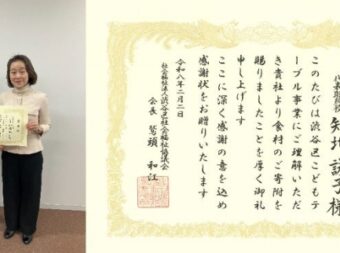 このたびは渋谷区こどもテ
ーブル事業にご理解いただ
き貴社より食材のご寄附を
賜りましたことを厚く御礼
申し上げます
ここに深く感謝の意を込め
感謝状をお贈りいたします
令和八年二月二日
社会福祉法人渋谷区社会福祉協議会
会長 和江